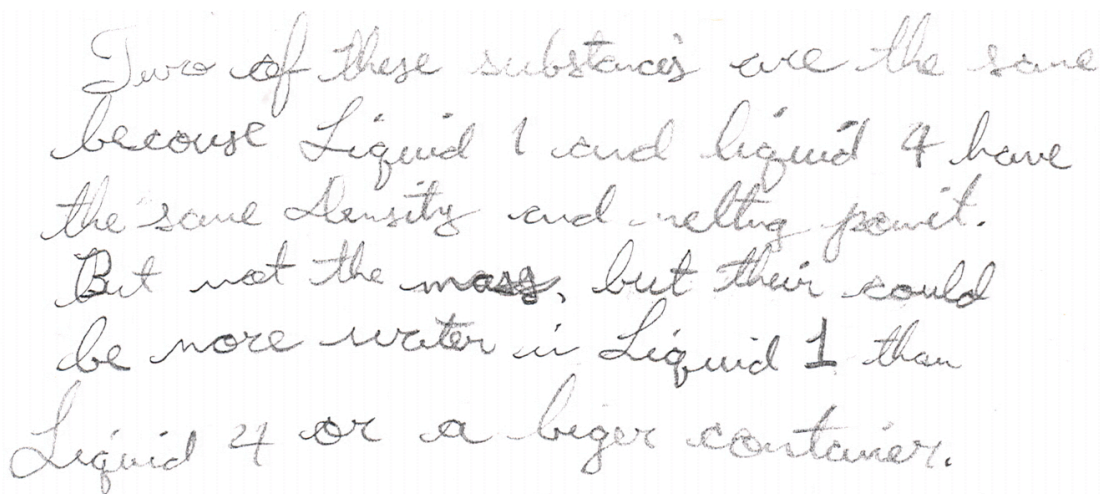 Two of these substances are the same
because Liquid 1 and liquid 4 have
the same density and melting point.
But not the mass, but their could
be more water in Liquid 1 than
Liquid 4 or a biger container.